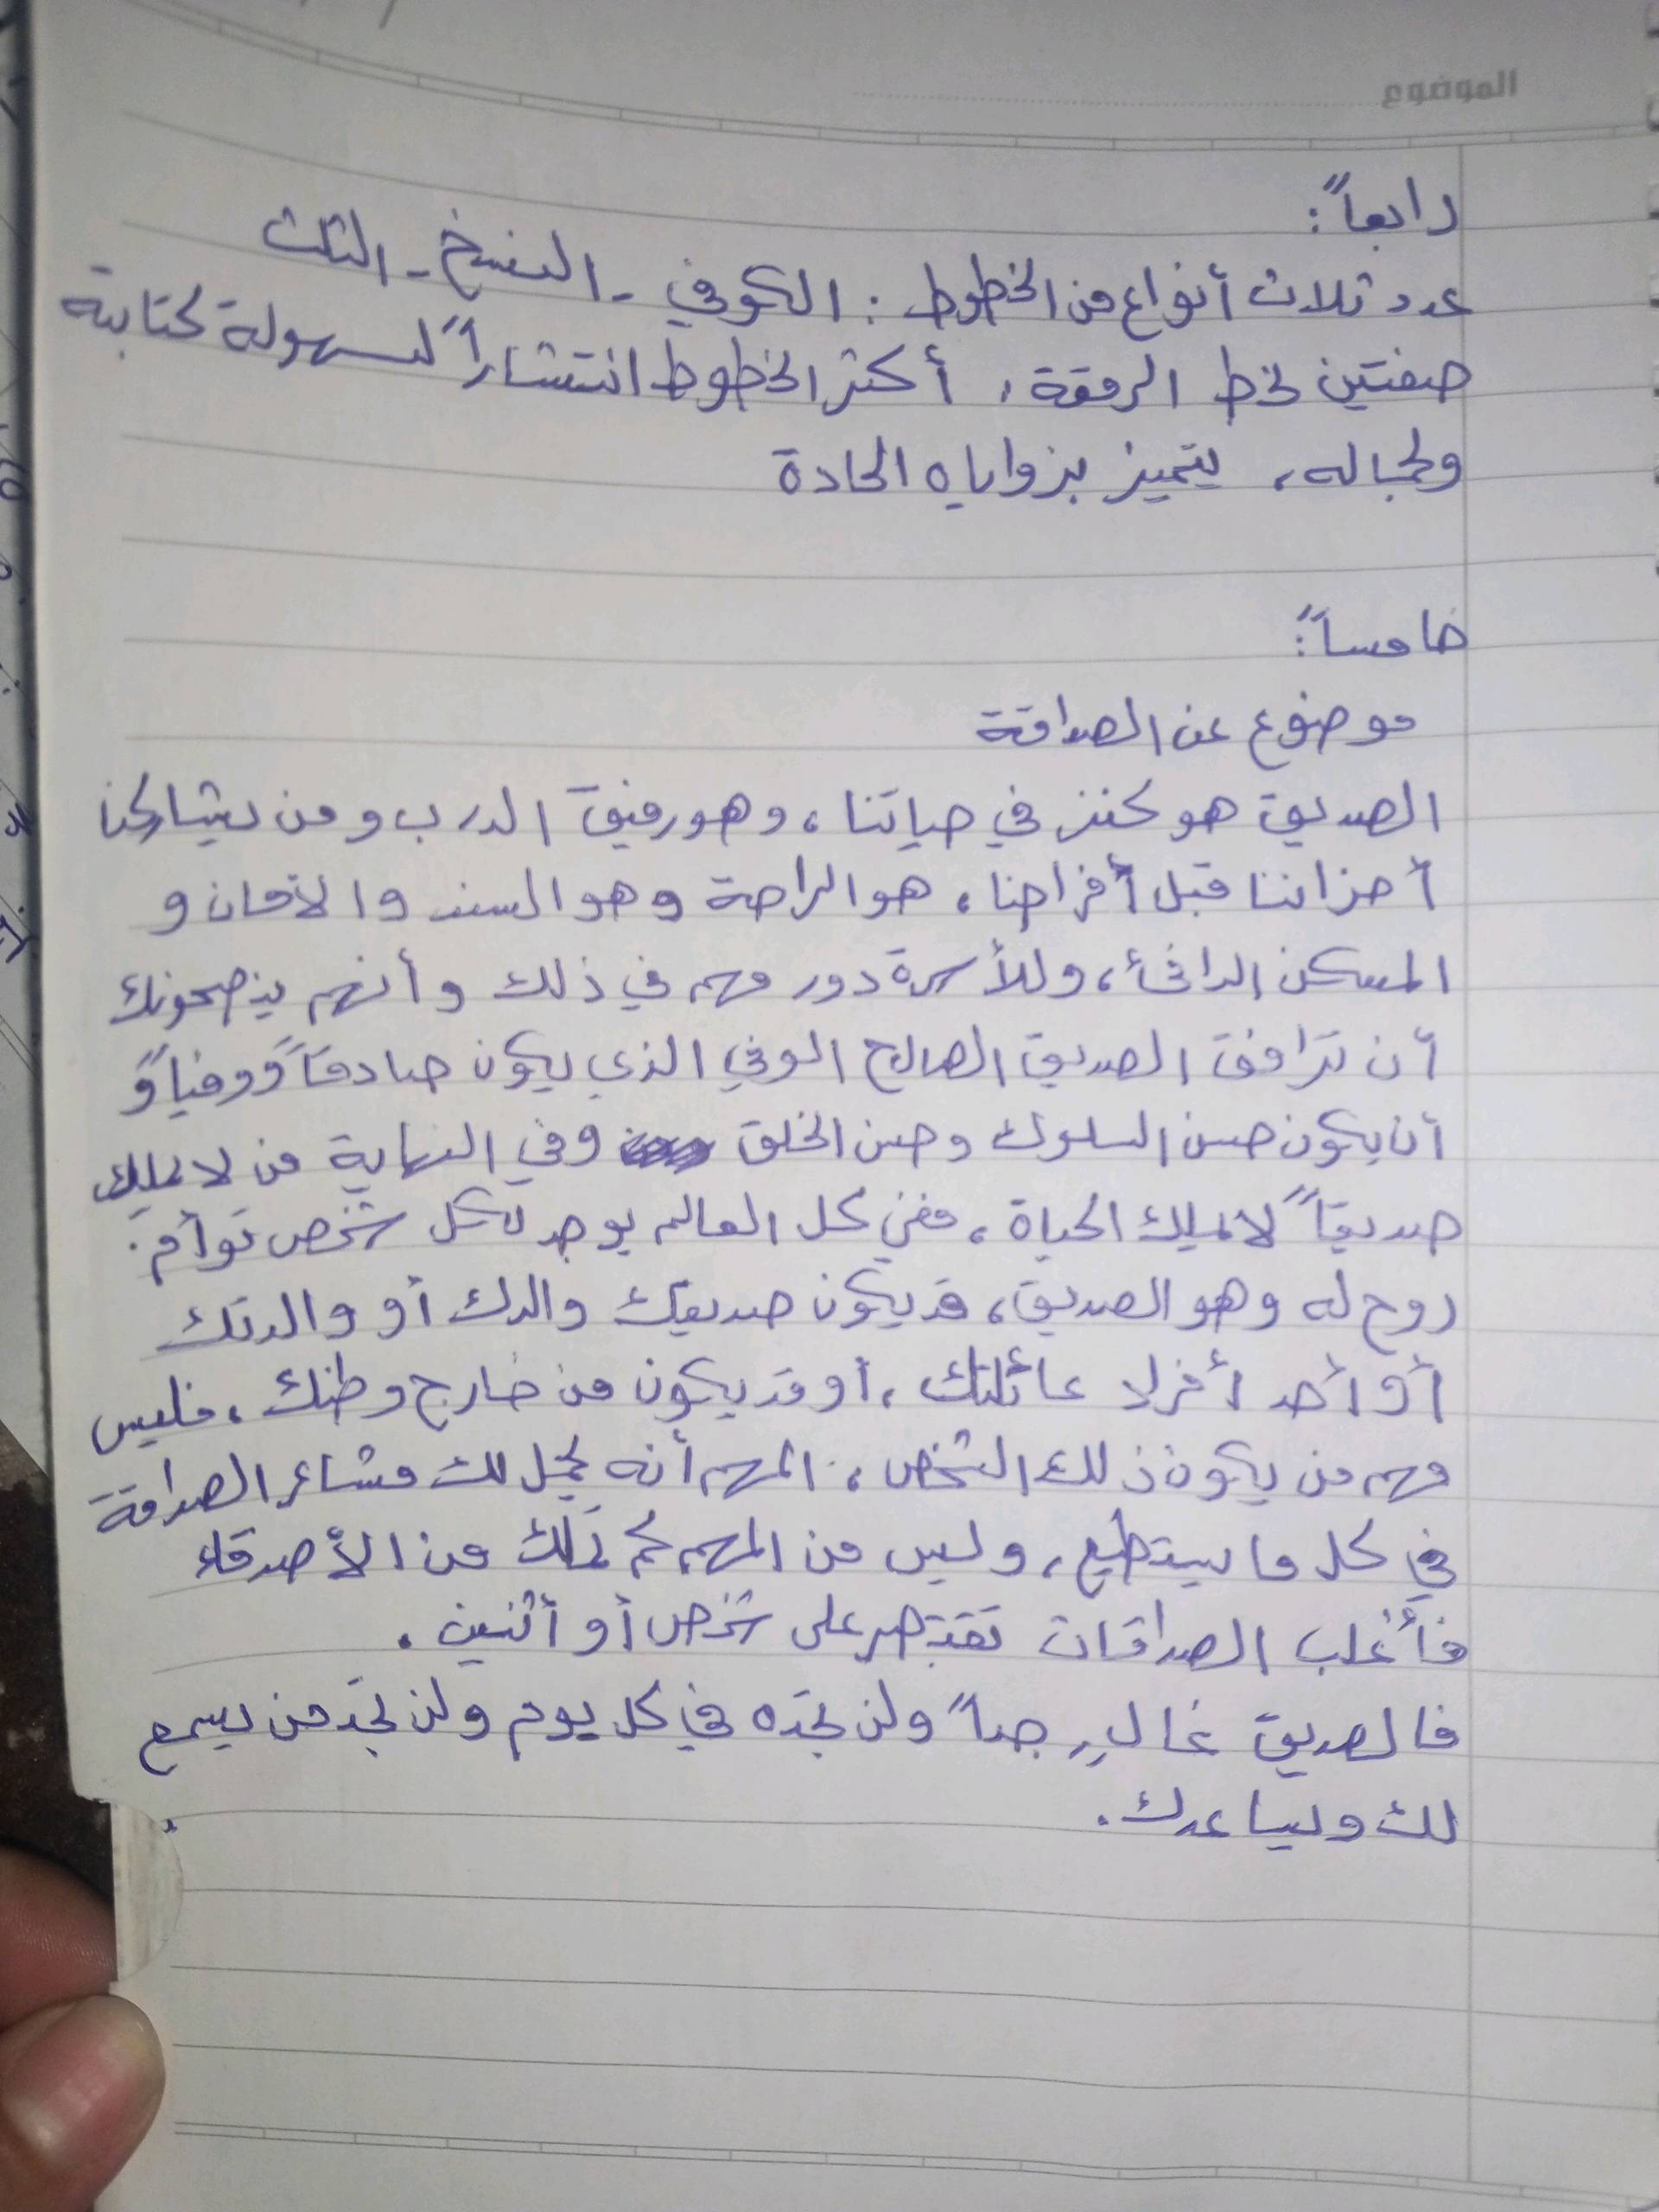 الموضوع
رابعاً:
عدد ثلاث أنواع من الخطوط : الكوفي - النسخ - الثلث
صفتين لخط الرقعة، أكثر الخطوط انتشاراً لسهولة كتابية
ولجماله، يتميز بزواياه الحادة
خامساً:
موضوع عن الصداقة
الصديق هو كنز في حياتنا، وهو رفيق الدرب ومن يشاركنا
أحزاننا قبل أفراحنا، هو الراحة وهو السند والأمان و
المسكن الدافئ، وللأسرة دور مهم في ذلك وأنهم ينصحونك
أن ترافق الصديق الصالح الوفي الذي يكون صادقاً ووفياً و
أن يكون حسن السلوك وحسن الخلق وفي النهاية من لا يملك
صديقاً لا يملك الحياة، ففي كل العالم يوجد لكل شخص توأم
روح له وهو الصديق، قد يكون صديقك والدك أو والدتك
أو أحد أفراد عائلتك، أو قد يكون من خارج وطنك، فليس
مهم من يكون ذلك الشخص، المهم أنه يحمل لك مشاعر الصداقة
في كل ما يستطيع، وليس من المهم كم تملك من الأصدقاء
فأغلب الصداقات تقتصر على شخص أو أثنين.
فالصديق غالٍ جداً ولن تجده في كل يوم ولن تجد من يسمع
لك ويساعدك.